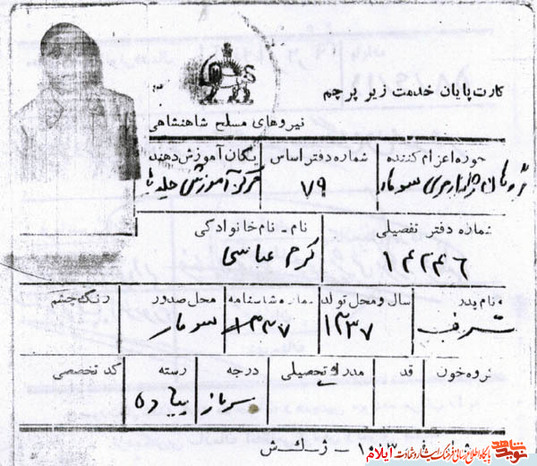 کارت پایان خدمت زیر پرچم
نیروهای مسلح شاهنشاهی
حوزه اعزام کننده
شماره دفتر اساس
یگان آموزش دهنده
ژاندارمری سومار
۷۹
مرکز آموزش
شماره دفتر تفصیلی
نام - نام خانوادگی
۱۴۲۴۶
کرم عباسی
نام پدر
سال و محل تولد
شماره شناسنامه
محل صدور
رنگ چشم
شرف
۱۳۳۷
۱۳۳۷
سومار
گروه خون
قد
مدرک تحصیلی
درجه
رسته
کد تخصصی
سرباز
پیاده
نوید شاهد
ایلام